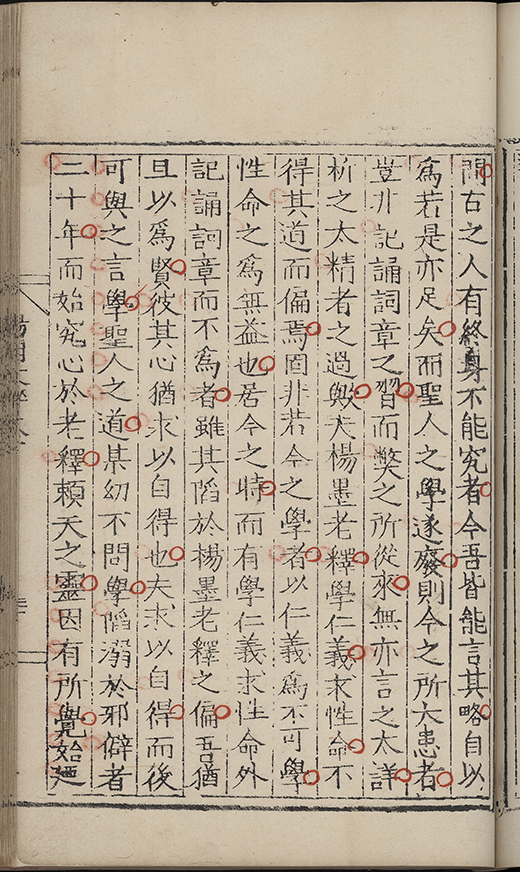 間古之人有終身不能究者今吾皆能言其略自以
爲若是亦足矣而聖人之學遂廢則今之所大患者
豈非記誦詞章之習而弊之所從來無亦言之太詳
析之太精者之過歟夫楊墨老釋學仁義求性命不
得其道而偏焉固非若今之學者以仁義爲不可學
性命之爲無益也居今之時而有學仁義求性命外
記誦詞章而不爲者雖其陷於楊墨老釋之偏吾猶
且以爲賢彼其心猶求以自得也夫求以自得而後
可與之言學聖人之道某幼不問學陷溺於邪僻者
二十年而始究心於老釋賴天之靈因有所覺始㢠